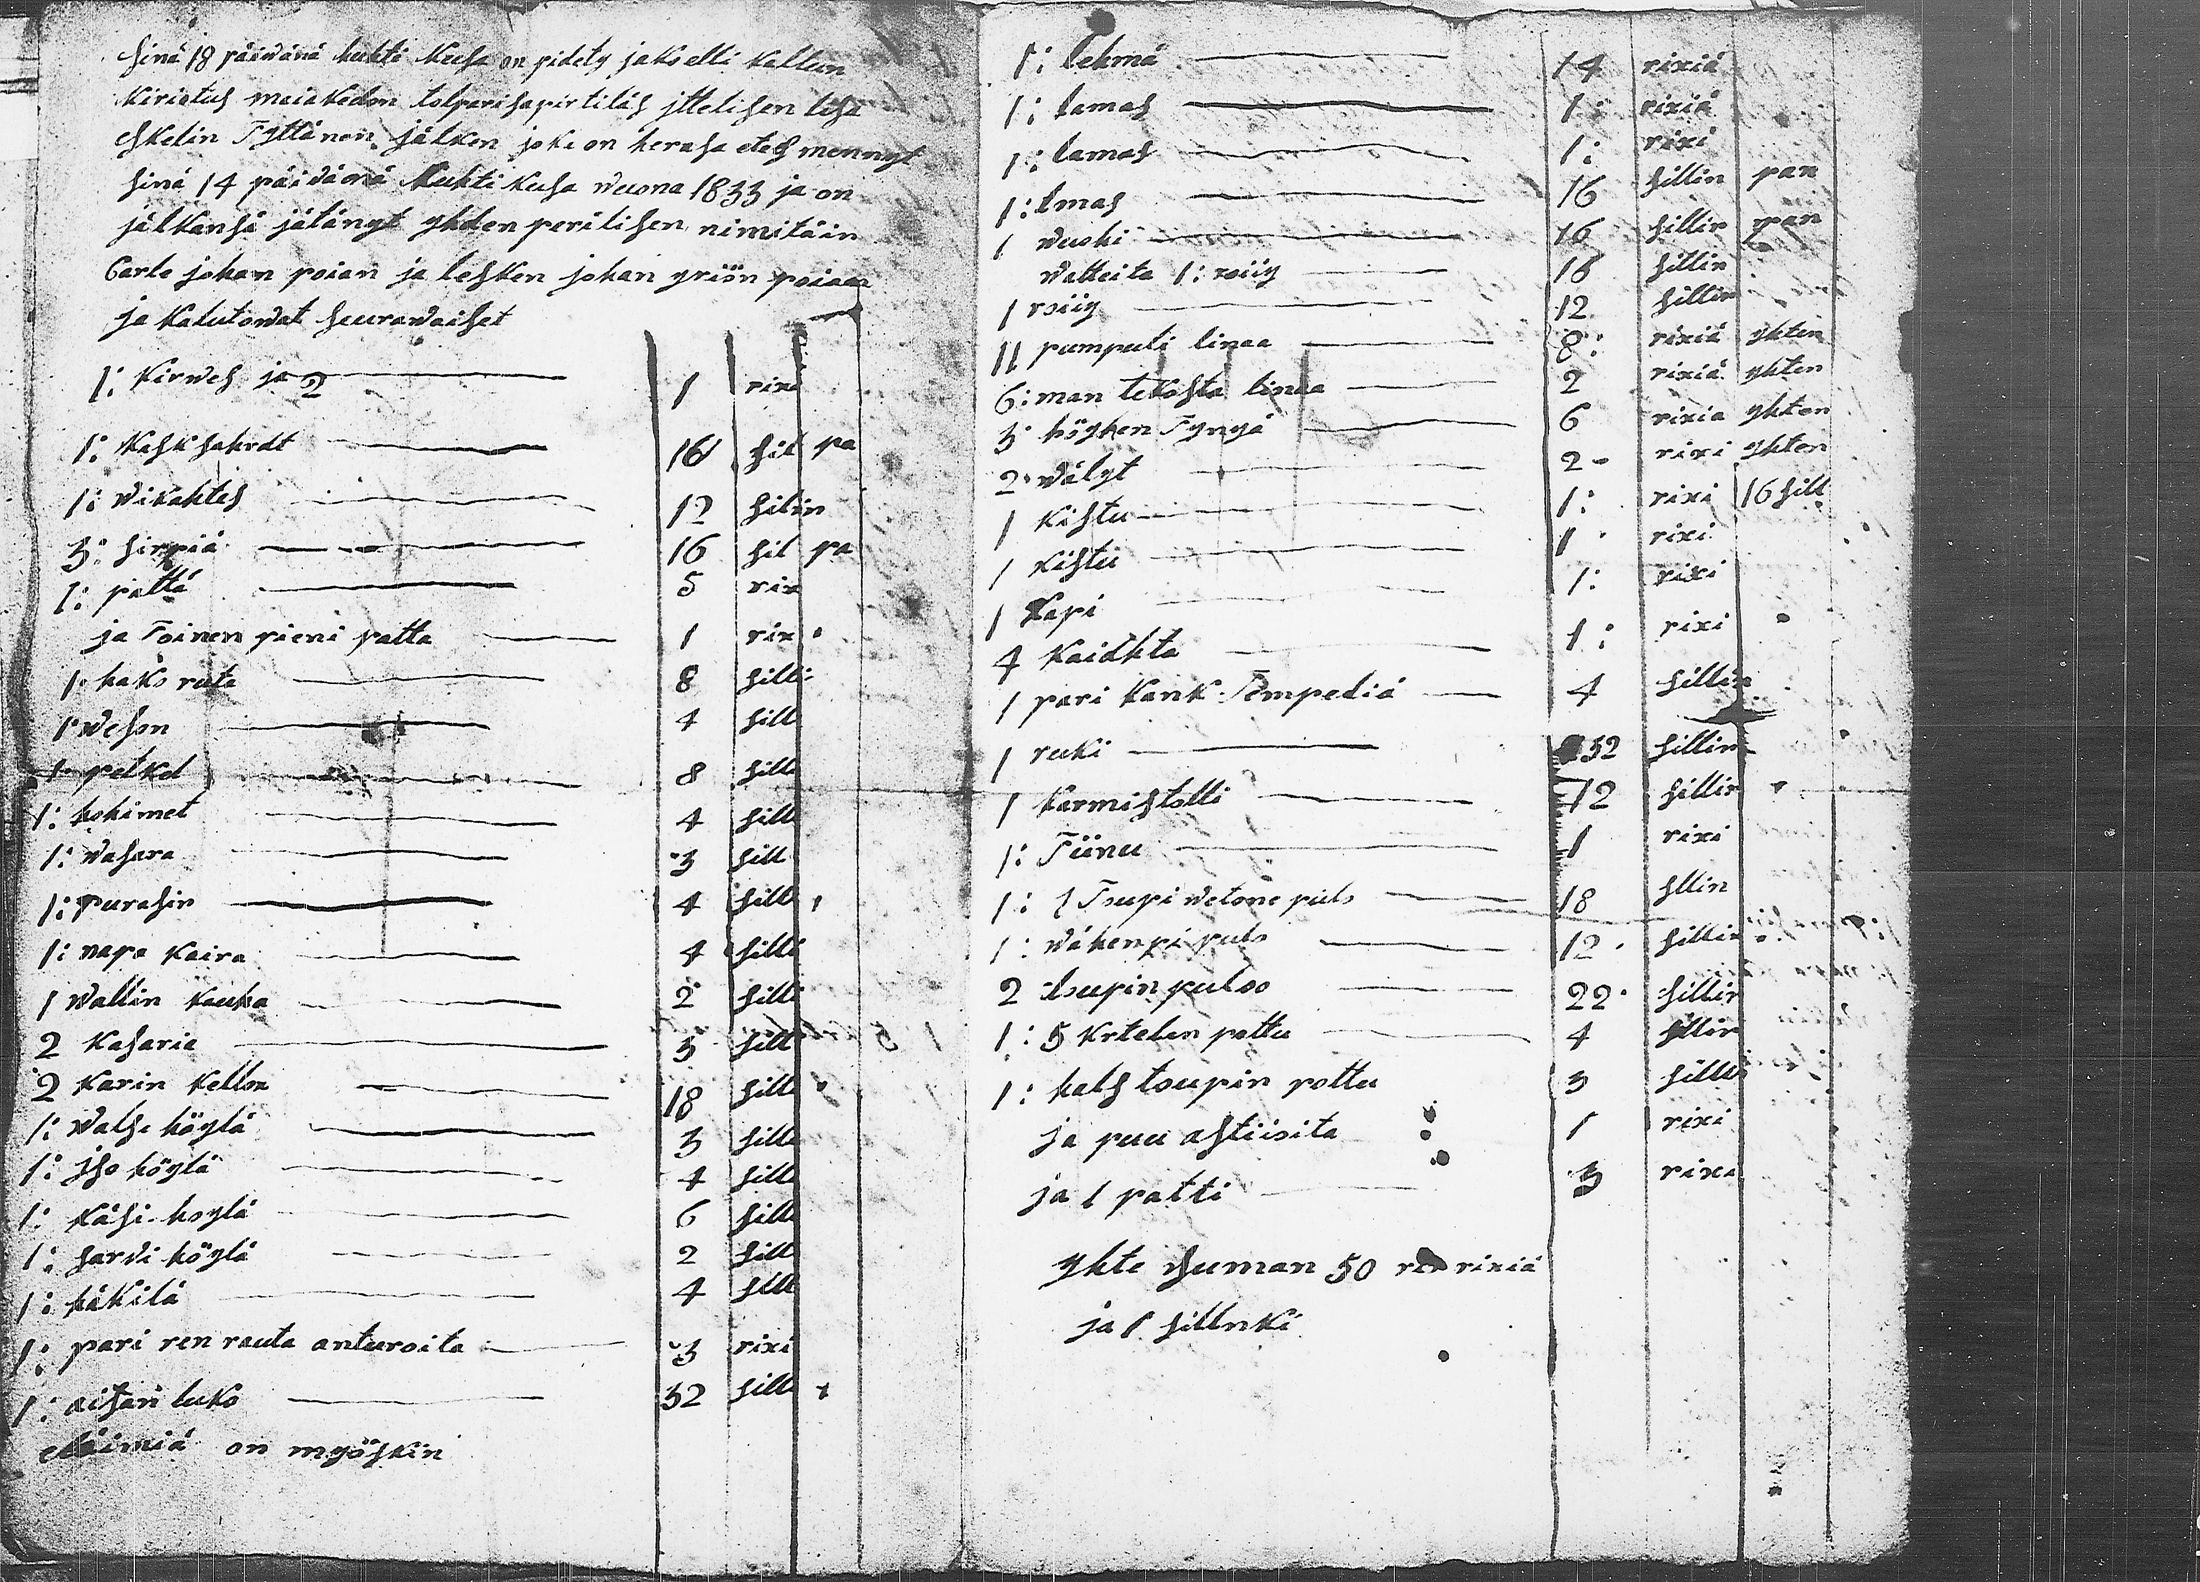 sinä 18 päiwänä huhti kusa on pidety jakselli kallun
kiriotus maiakedon tolparisapirtiläs jttelisen lesä
eskelin Tyttänen jälken joka on herasa eteS mennyt
sinä 14 päiwänä huhti kusa wuona 1833 ja on
jälkänsä jätänyt yhden perälisen nimitäin
Carle johan poian ja lesken johan yriön poiaan
ja kalutowat seurawaiset
1: kirweS ja 2 1 rixi
1: kaSk sahrat 16 sil pa
1: wikahteS 12 silin
3: sirpiä 16 sil pa
1: patta 5 rix
ja Toinen pieni patta 1 rix
1: haks ruta 8 silli
1 weson 4 sill
1 petkel 8 sill
1: hohimet 4 sill
1: wasara 3 sill
1: purasin 4 sill
1: napa kaira 4 silli
1 wallin kauha 2 silli
2 kasaria 3 sill
2 karin kellon 18 sill
1: walsi höylä 3 sill
1: jso höylä 4 sill
1: käsi höylä 6 sill
1: sarwi höylä 2 sill
1: häkilä 4 sill
1: pari ren rauta anturoita 3 rixi
1: aitan luko 32 sill
eläimiä on myöskin
1: lehmä 14 rixiä
1: lamas 1: rixiä
1: lamas 1: rixi
1: lmas 16 sillin pan
1 wuohi 16 sillin pan
watteita 1: roiiy 16 sillin
1 roiiy 12 sillin
11 pumpuli linaa 8: rixiä yhten
6: man tekosta linaa 2 rixiä yhten
3 höyhen Tynyä 6 rixia yhten
2 wälyt 2 rixi yhten
1 kistu 1: rixi 16 sill
1 kistu 1 rixi
1 kapi 1: rixi
4 kaidhta 1: rixi
1 pari kank Tempediä 4 sillin
1 ruki 32 sillin
1 karmistolli 12 sillin
1: Tiinu 1 rixi
1: 1 Tsupi wetone puls 18 sllin
1: wähenpi puls 12 sillin
2 tsupin puloo 22 sillin
1: 5 krtelen pottu 4 sillin
1: halS toupin pottu 3 sillin
ja puu astiisita 1 rixi
ja 1 patti 3 rixi
yhte suman 50 rixiä
ja 1 sillnki